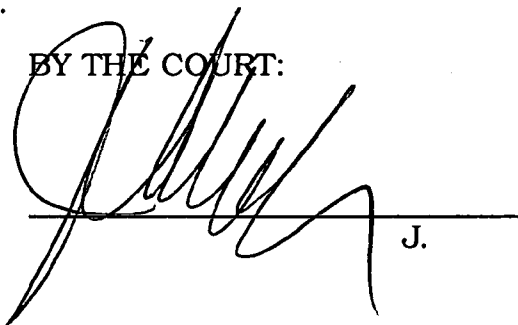 BY THE COURT:
J.